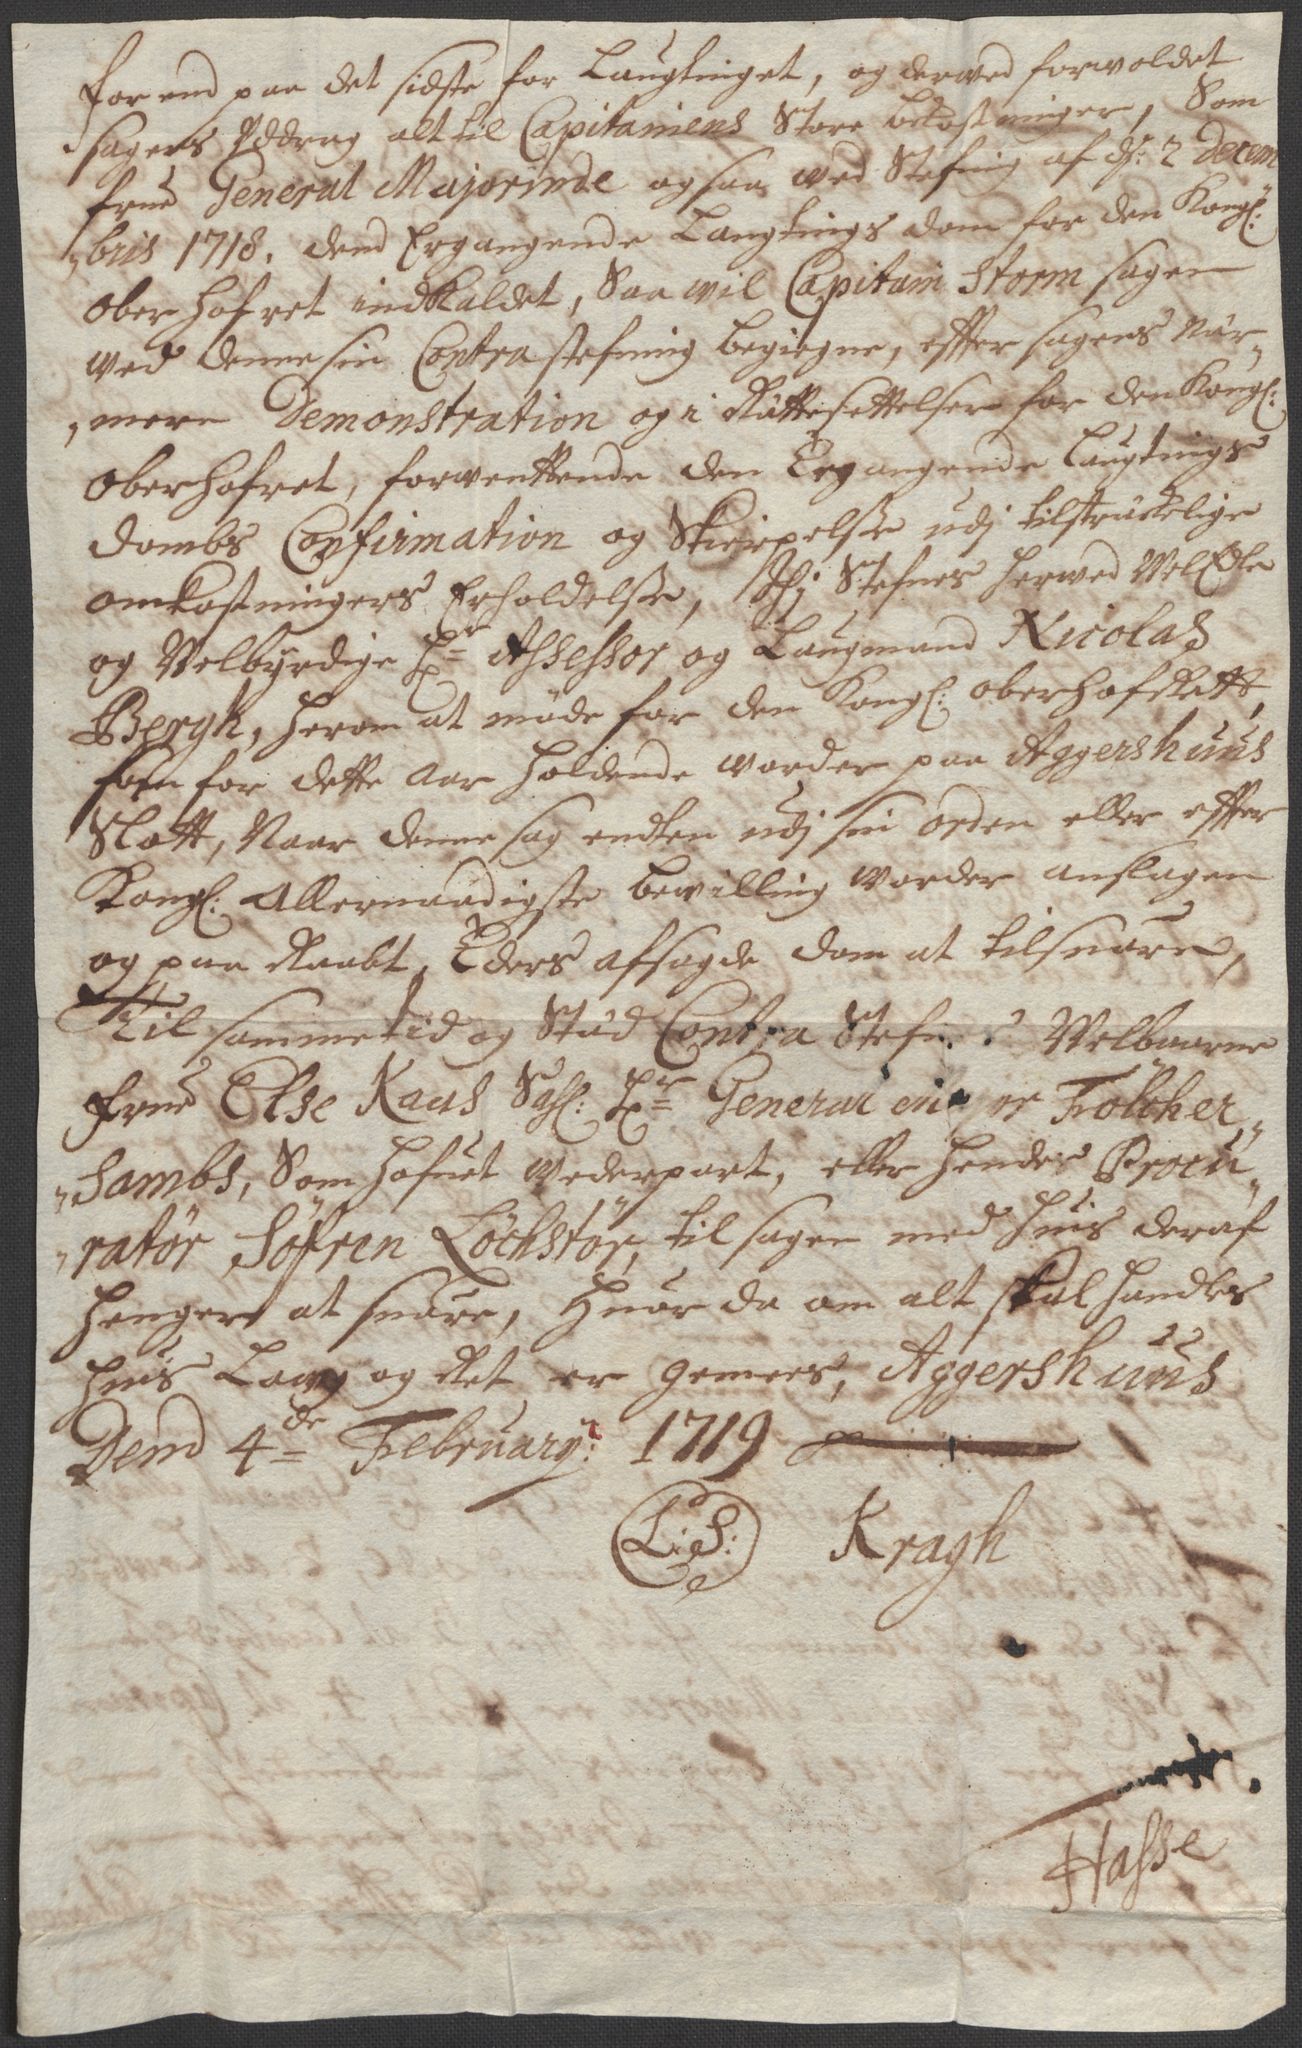 for end paa det sidste for Laugtinget, og derved forvoldet
sagers Uddrag alt til Capitainens Store bekostninger, Som
frue General Majorinde ogsaa ved Stefning af ds: 2 Decem
„bris 1718. dend Ergangende Laugtings dom for den Kongl:
Ober Hof ret indkaldet, Saa vil Capitain Storm sagen
ved denne sin Contra stefning begiegne, effter sagens När„
„mere Demonstration og i Rättesettelser for den Kongl:
Oberhofret, forventtende den Ergangende Laugtings
dombs Confirmation og Skierpelse udj tilstrückelige
omkostningers Erholdelse, Thj Stefnes herved VelEdle
og Velbyrdige Hr Assessor og Laugmand Nicolas
Bergh, herom at möde for den Kongl: Oberhof Rett,
som for dette Aar holdende vorder paa Aggershuus
Slott, Naar denne sag endten udj sin orden eller effter
Kongl: Allernaadigste bevilling vorder anslagen
og paa Raabt, Eders afsagde dom at tilsvare,
Til samme tid og Städ Contra Stefnes Velbaarne
frue Else Kaas Sahl: Hr General major Tolcher„
„Sambs, Som hafuet vederpart, eller hendes Procu„
„ratör Söfren Löchstör, til sagen med huis deraf
henger at svare, Huor da om alt skal handles
huis Law og Ret er gemees, Aggershuus
Dend 4de February: 1719
L:S: Kragh
Hasse